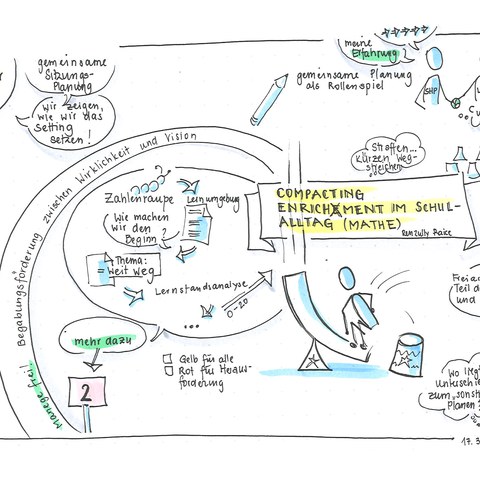 gemeinsame
Sitzungs-
Planung
Wir zeigen,
wie wir das
Setting
setzen!
meine
Erfahrung
SHP
gemeinsame Planung
als Rollenspiel
Stroffen...
kürzen weg-
streichen
Begabungsförderung zwischen Wirklichkeit und Vision
Manege frei!..
Zahlenraupe
Lernumgebung
Wie machen
wir den
Beginn?
Thema:
= weit weg
Lernstandsanalyse
0-20
...
COMPACTING
ENRICHMENT IM SCHUL-
ALLTAG (MATHE)
Renzulli
mehr dazu
2
Gelb für alle
Rot für Heraus-
forderung
Teil d
und
Wo lieg
zum "sonst
Planen?
17.3